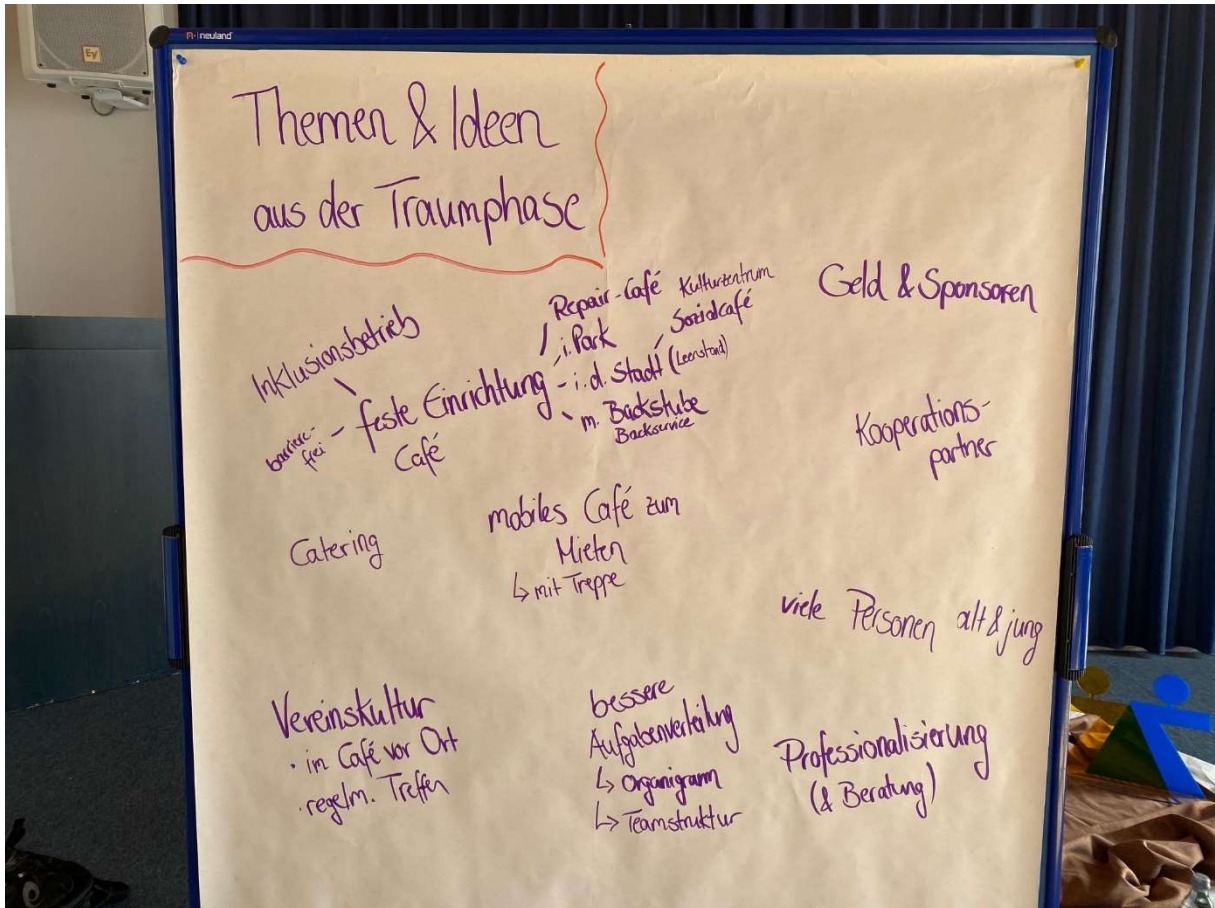 EV
neuland
Themen & Ideen
aus der Traumphase
Inklusionsbetrieb
barriere-
frei
feste Einrichtung
Café
Repair-Café
i. Park
i. d. Stadt (Leerstand)
m. Backstube
Backservice
Kulturzentrum
Sozialcafé
Geld & Sponsoren
Kooperations-
partner
Catering
mobiles Café zum
Mieten
↳ mit Treppe
viele Personen alt & jung
Vereinskultur
· im Café vor Ort
· regelm. Treffen
bessere
Aufgabenverteilung
↳ Organigramm
↳ Teamstruktur
Professionalisierung
(& Beratung)